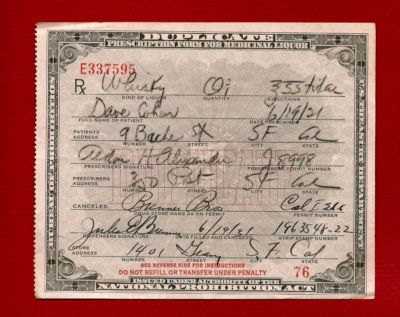 DUPLICATE
PRESCRIPTION FORM FOR MEDICINAL LIQUOR
E337595
Rx Whisky Oi
KIND OF LIQUOR QUANTITY DIRECTIONS
Dave 6/19/21
FULL NAME OF PATIENT DATE PRESCRIBED
PATIENTS ADDRESS 9 St SF Cal
NUMBER STREET CITY STATE
H Alexander 98998
PRESCRIBERS SIGNATURE PRESCRIBERS PERMIT NUMBER
PRESCRIBERS ADDRESS SF Cal
NUMBER STREET CITY STATE
CANCELED Bros Cal I
DRUG STORE NAME AS ON PERMIT PERMIT NUMBER
6/19/21 1963548-22
SIGNATURE DATE FILLED AND CANCELED STRIP STAMP NUMBER
STORE ADDRESS 1401 S.F. Cal
NUMBER STREET CITY STATE
SEE REVERSE SIDE FOR INSTRUCTIONS
DO NOT REFILL OR TRANSFER UNDER PENALTY 76
ISSUED UNDER AUTHORITY OF THE
NATIONAL PROHIBITION ACT